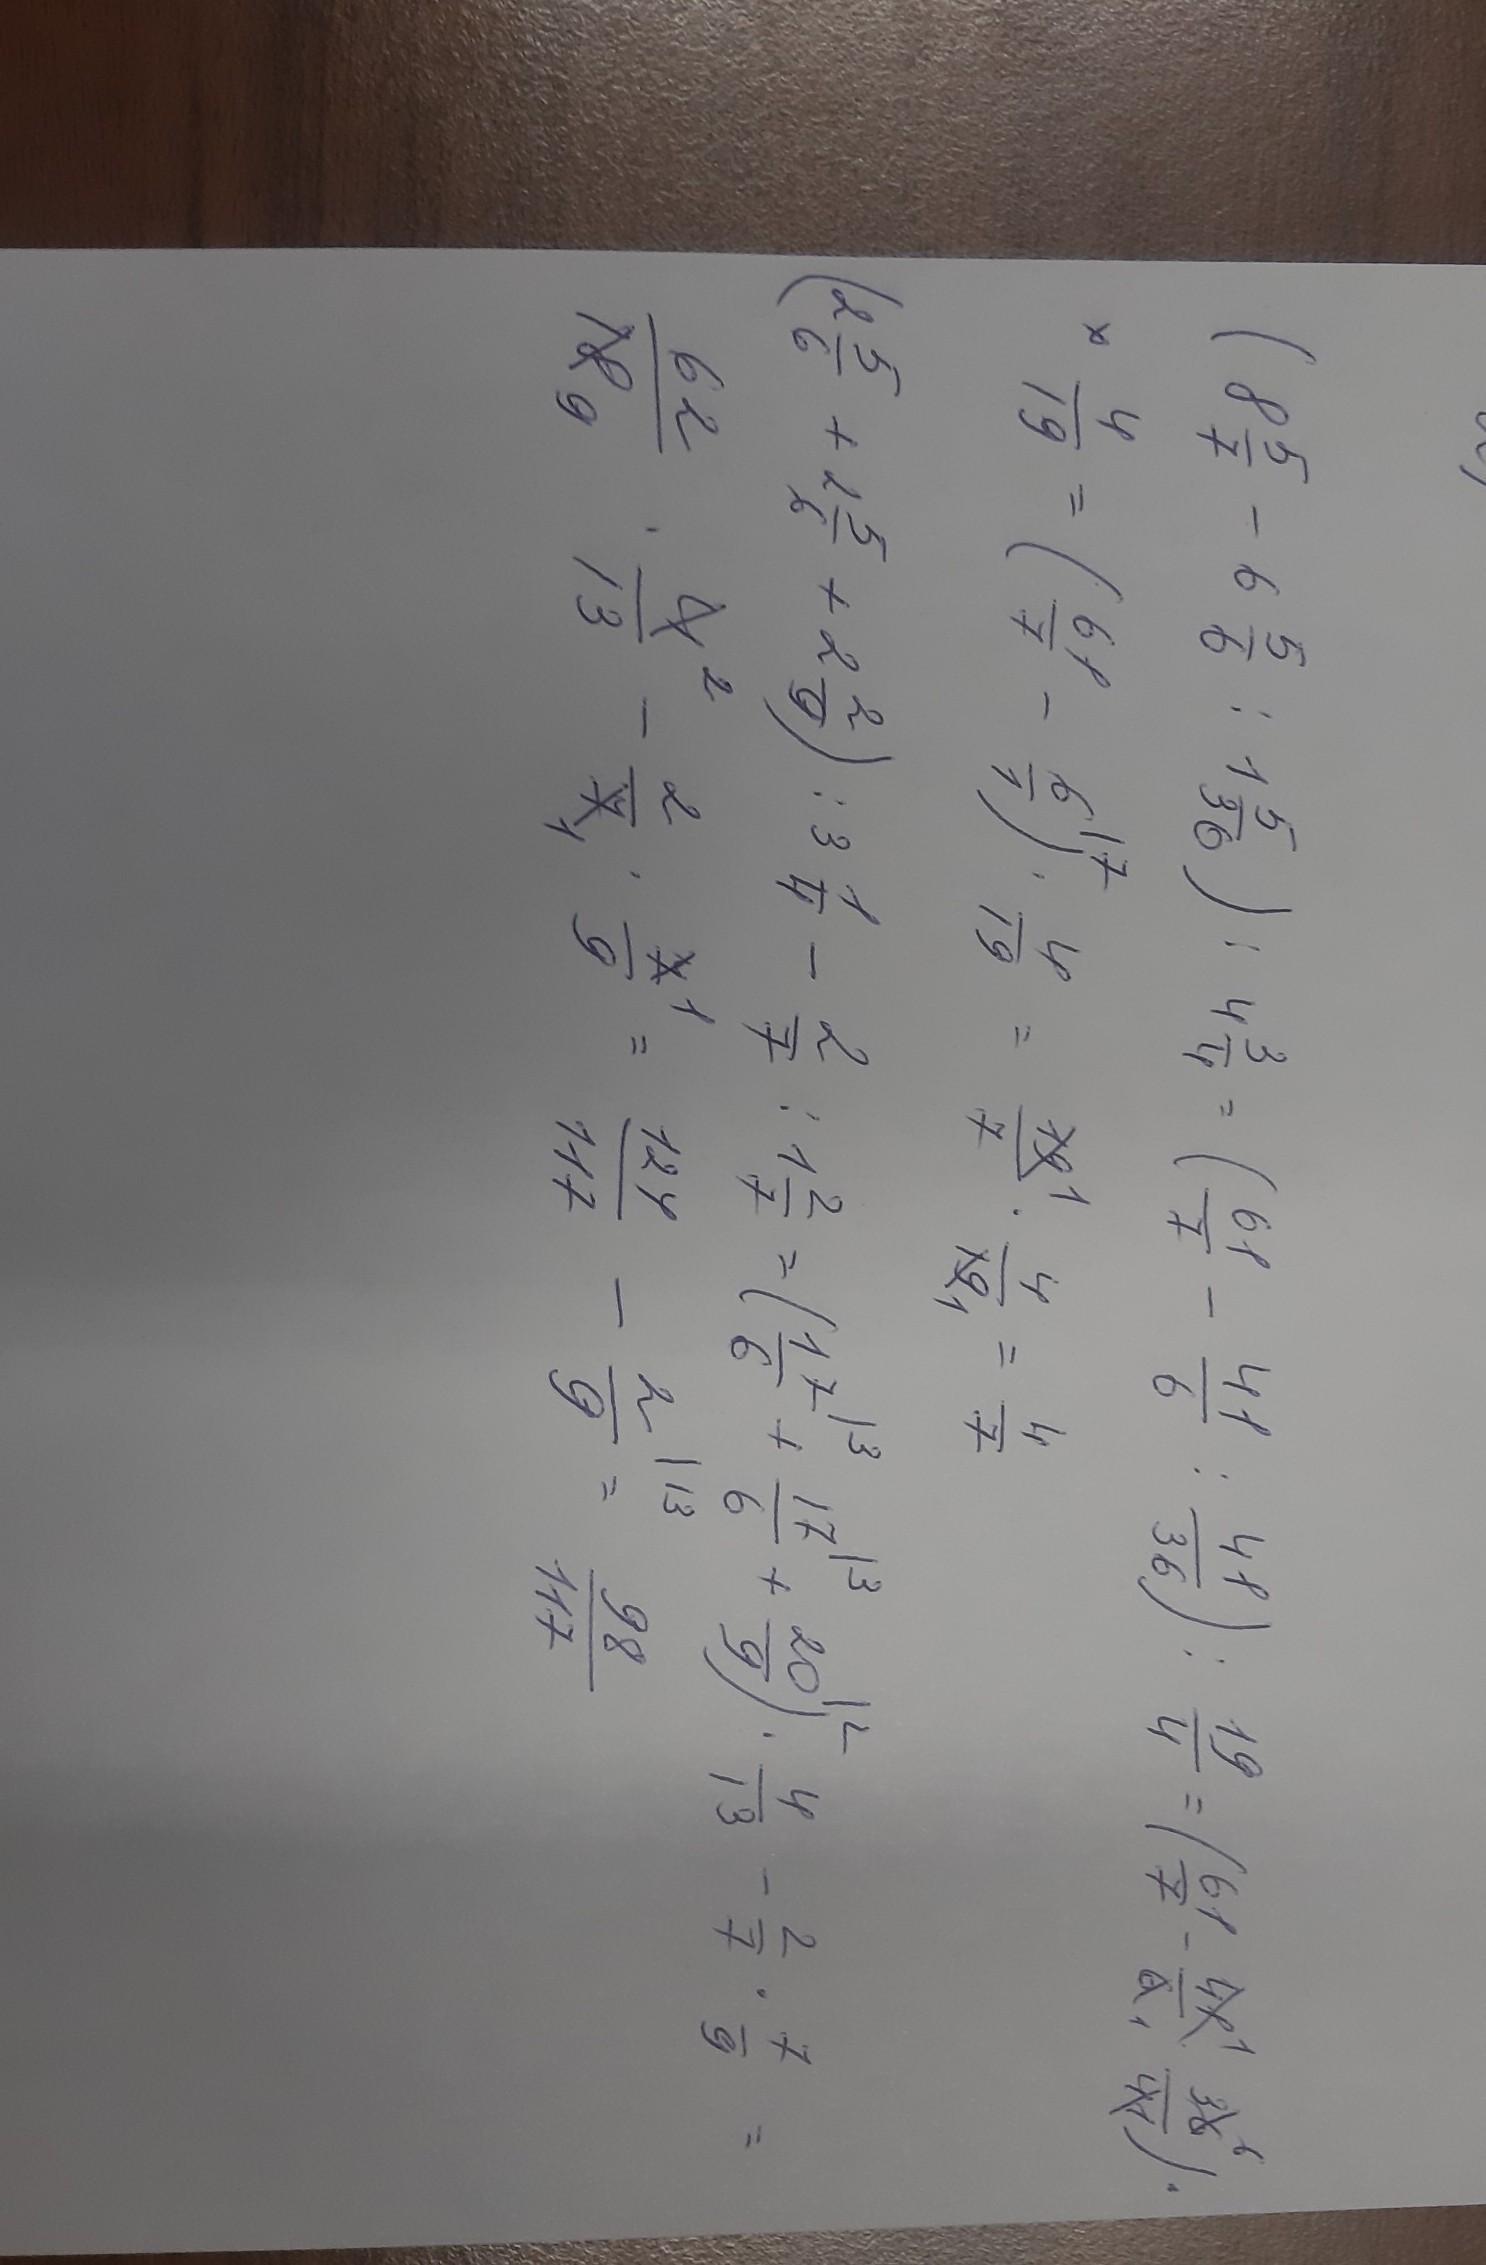 ( 8 5/7 - 6 5/6 : 1 5/36 ) : 4 3/4 = ( 61/7 - 41/6 : 41/36 ) : 19/4 = ( 61/7 - 41/6 1 1 36/41 6 1 ) ·
× 4/19 = ( 61/7 - 6/1 |7 ) · 4/19 = 19/7 1 · 4/19 1 = 4/7
( 2 5/6 + 2 5/6 + 2 2/9 ) : 3 1/4 - 2/7 : 1 2/7 = ( 17/6 |3 + 17/6 |3 + 20/9 |2 ) · 4/13 - 2/7 · 7/9 =
62/18 9 · 4/13 2 - 2/7 1 · 7/9 1 = 124/117 - 2/9 |13 = 98/117